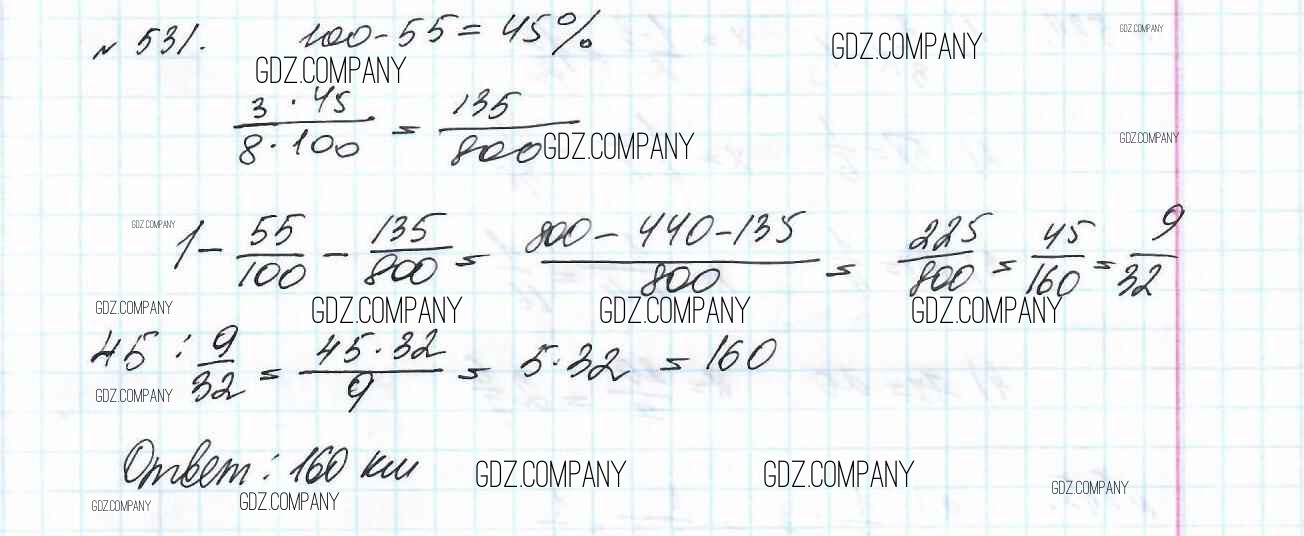 № 531. 100-55=45%
GDZ.COMPANY GDZ.COMPANY GDZ.COMPANY
3·45/8·100 = 135/800
GDZ.COMPANY GDZ.COMPANY
GDZ.COMPANY
1 - 55/100 - 135/800 = 800-440-135/800 = 225/800 = 45/160 = 9/32
GDZ.COMPANY GDZ.COMPANY GDZ.COMPANY GDZ.COMPANY
45 : 9/32 = 45·32/9 = 5·32 = 160
GDZ.COMPANY
Ответ: 160 км
GDZ.COMPANY GDZ.COMPANY GDZ.COMPANY
GDZ.COMPANY GDZ.COMPANY